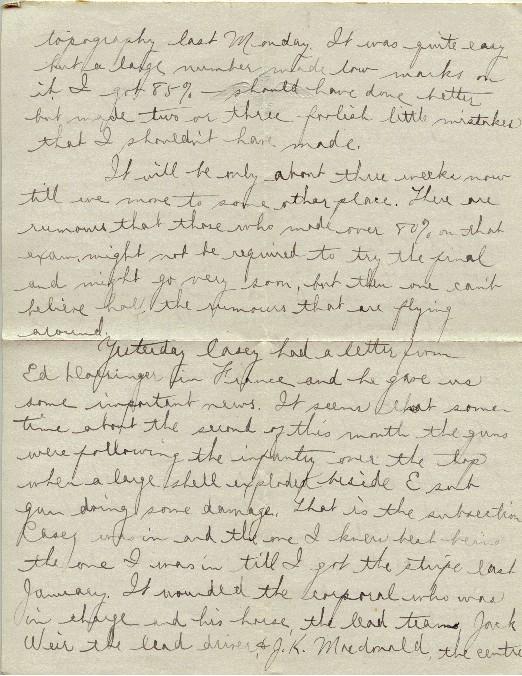 topography last Monday. It was quite easy
but a large number made low marks on
it. I got 85% - should have done better
but made two or three foolish little mistakes
that I shouldn't have made.
It will be only about three weeks now
till we move to some other place. There are
rumours that those who made over 80% on that
exam. might not be required to try the final
and might go very soon, but then one can't
believe half the rumours that are flying
around.
Yesterday Casey had a letter from
Ed in France and he gave us
some important news. It seems that some
time about the second of this month the guns
were following the infantry over the top
when a large shell exploded beside E sub
gun doing some damage. That is the subsection
Casey was in and the one I knew best being
the one I was in till I got the stripe last
January. It wounded the corporal who was
in charge and his horse, the lead team, Jack
Weir the lead driver & J.K. Macdonald, the centre